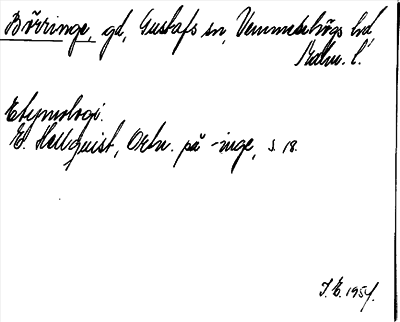 Börringe, gd, Gustafs sn, Vemmenhögs hd,
Malm. l.
Etymologi.
E. Hellquist, Ortn. på -inge, s. 18.
I.E. 1954.